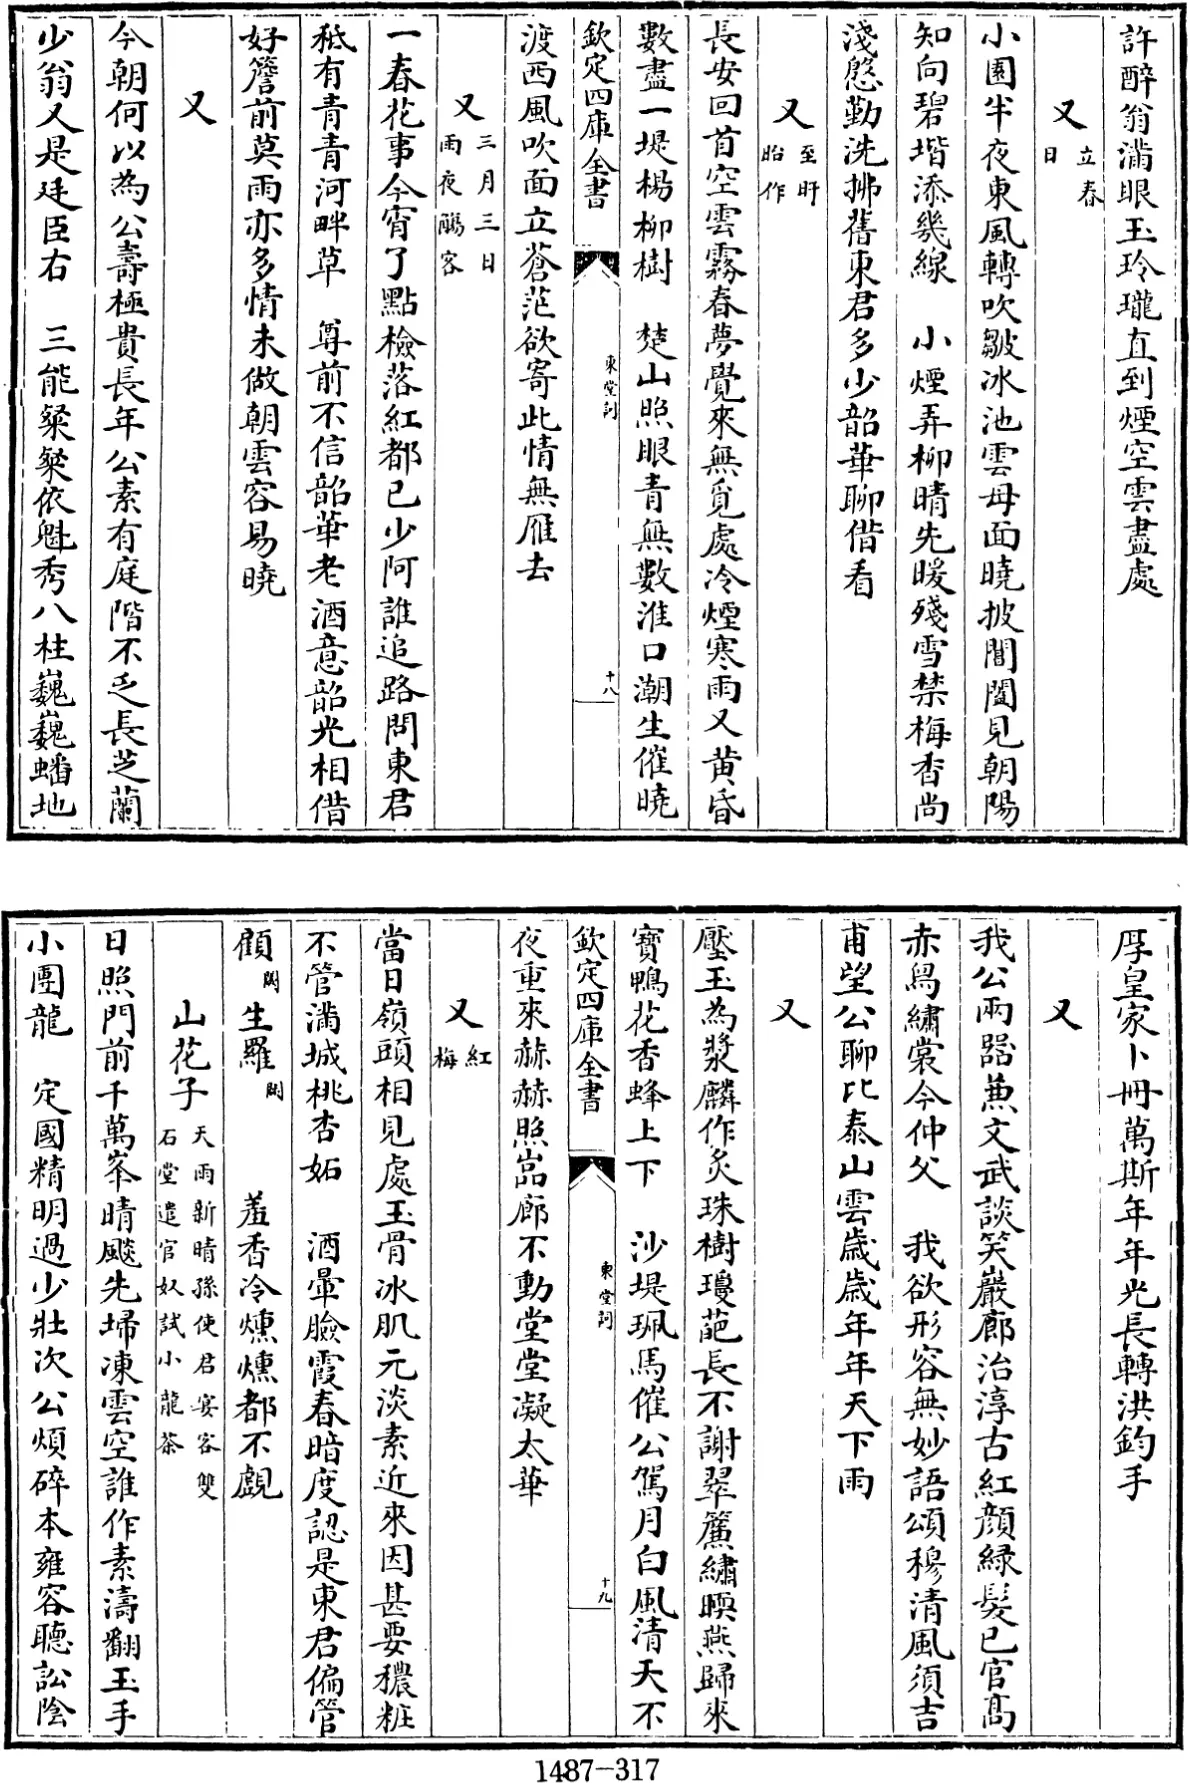 許醉翁滿眼玉玲瓏直到煙空雲盡處
又立春日
小園半夜東風轉吹皺冰池雲母面曉披閶闔見朝陽
知向碧堦添幾線　小煙弄柳晴先暖殘雪禁梅香尚
淺慇勤洗拂舊東君多少韶華聊借看
又至盱眙作
長安回首空雲霧春夢覺來無覓處冷煙寒雨又黃昏
數盡一堤楊柳樹　楚山照眼青無數淮口潮生催曉
欽定四庫全書　東堂詞　十八
渡西風吹面立蒼茫欲寄此情無雁去
又三月三日雨夜觴客
一春花事今宵了點檢落紅都已少阿誰追路問東君
秪有青青河畔草　尊前不信韶華老酒意韶光相借
好簷前莫雨亦多情未做朝雲容易曉
又
今朝何以為公壽極貴長年公素有庭階不乏長芝蘭
少翁又是廷臣右　三能粲粲依魁秀八柱巍巍蟠地
厚皇家卜冊萬斯年年光長轉洪鈞手
又
我公兩器兼文武談笑巖廊治淳古紅顏綠髮已官高
赤舄繡裳今仲父　我欲形容無妙語頌穆清風須吉
甫望公聊比泰山雲歲歲年年天下雨
又
壓玉為漿麟作炙珠樹瓊葩長不謝翠簾繡暝燕歸來
寶鴨花香蜂上下　沙堤珮馬催公駕月白風清天不
欽定四庫全書　東堂詞　十九
夜重來赫赫照巖廊不動堂堂凝太華
又紅梅
當日嶺頭相見處玉骨冰肌元淡素近來因甚要穠粧
不管滿城桃杏妬　酒暈臉霞春暗度認是東君偏管
顧闕生羅闕　羞香冷燻燻都不覷
山花子天雨新晴孫使君宴客雙石堂遣官奴試小龍茶
日照門前千萬峯晴飈先埽凍雲空誰作素濤翻玉手
小團龍　定國精明過少壯次公煩碎本雍容聽訟陰
1487-317